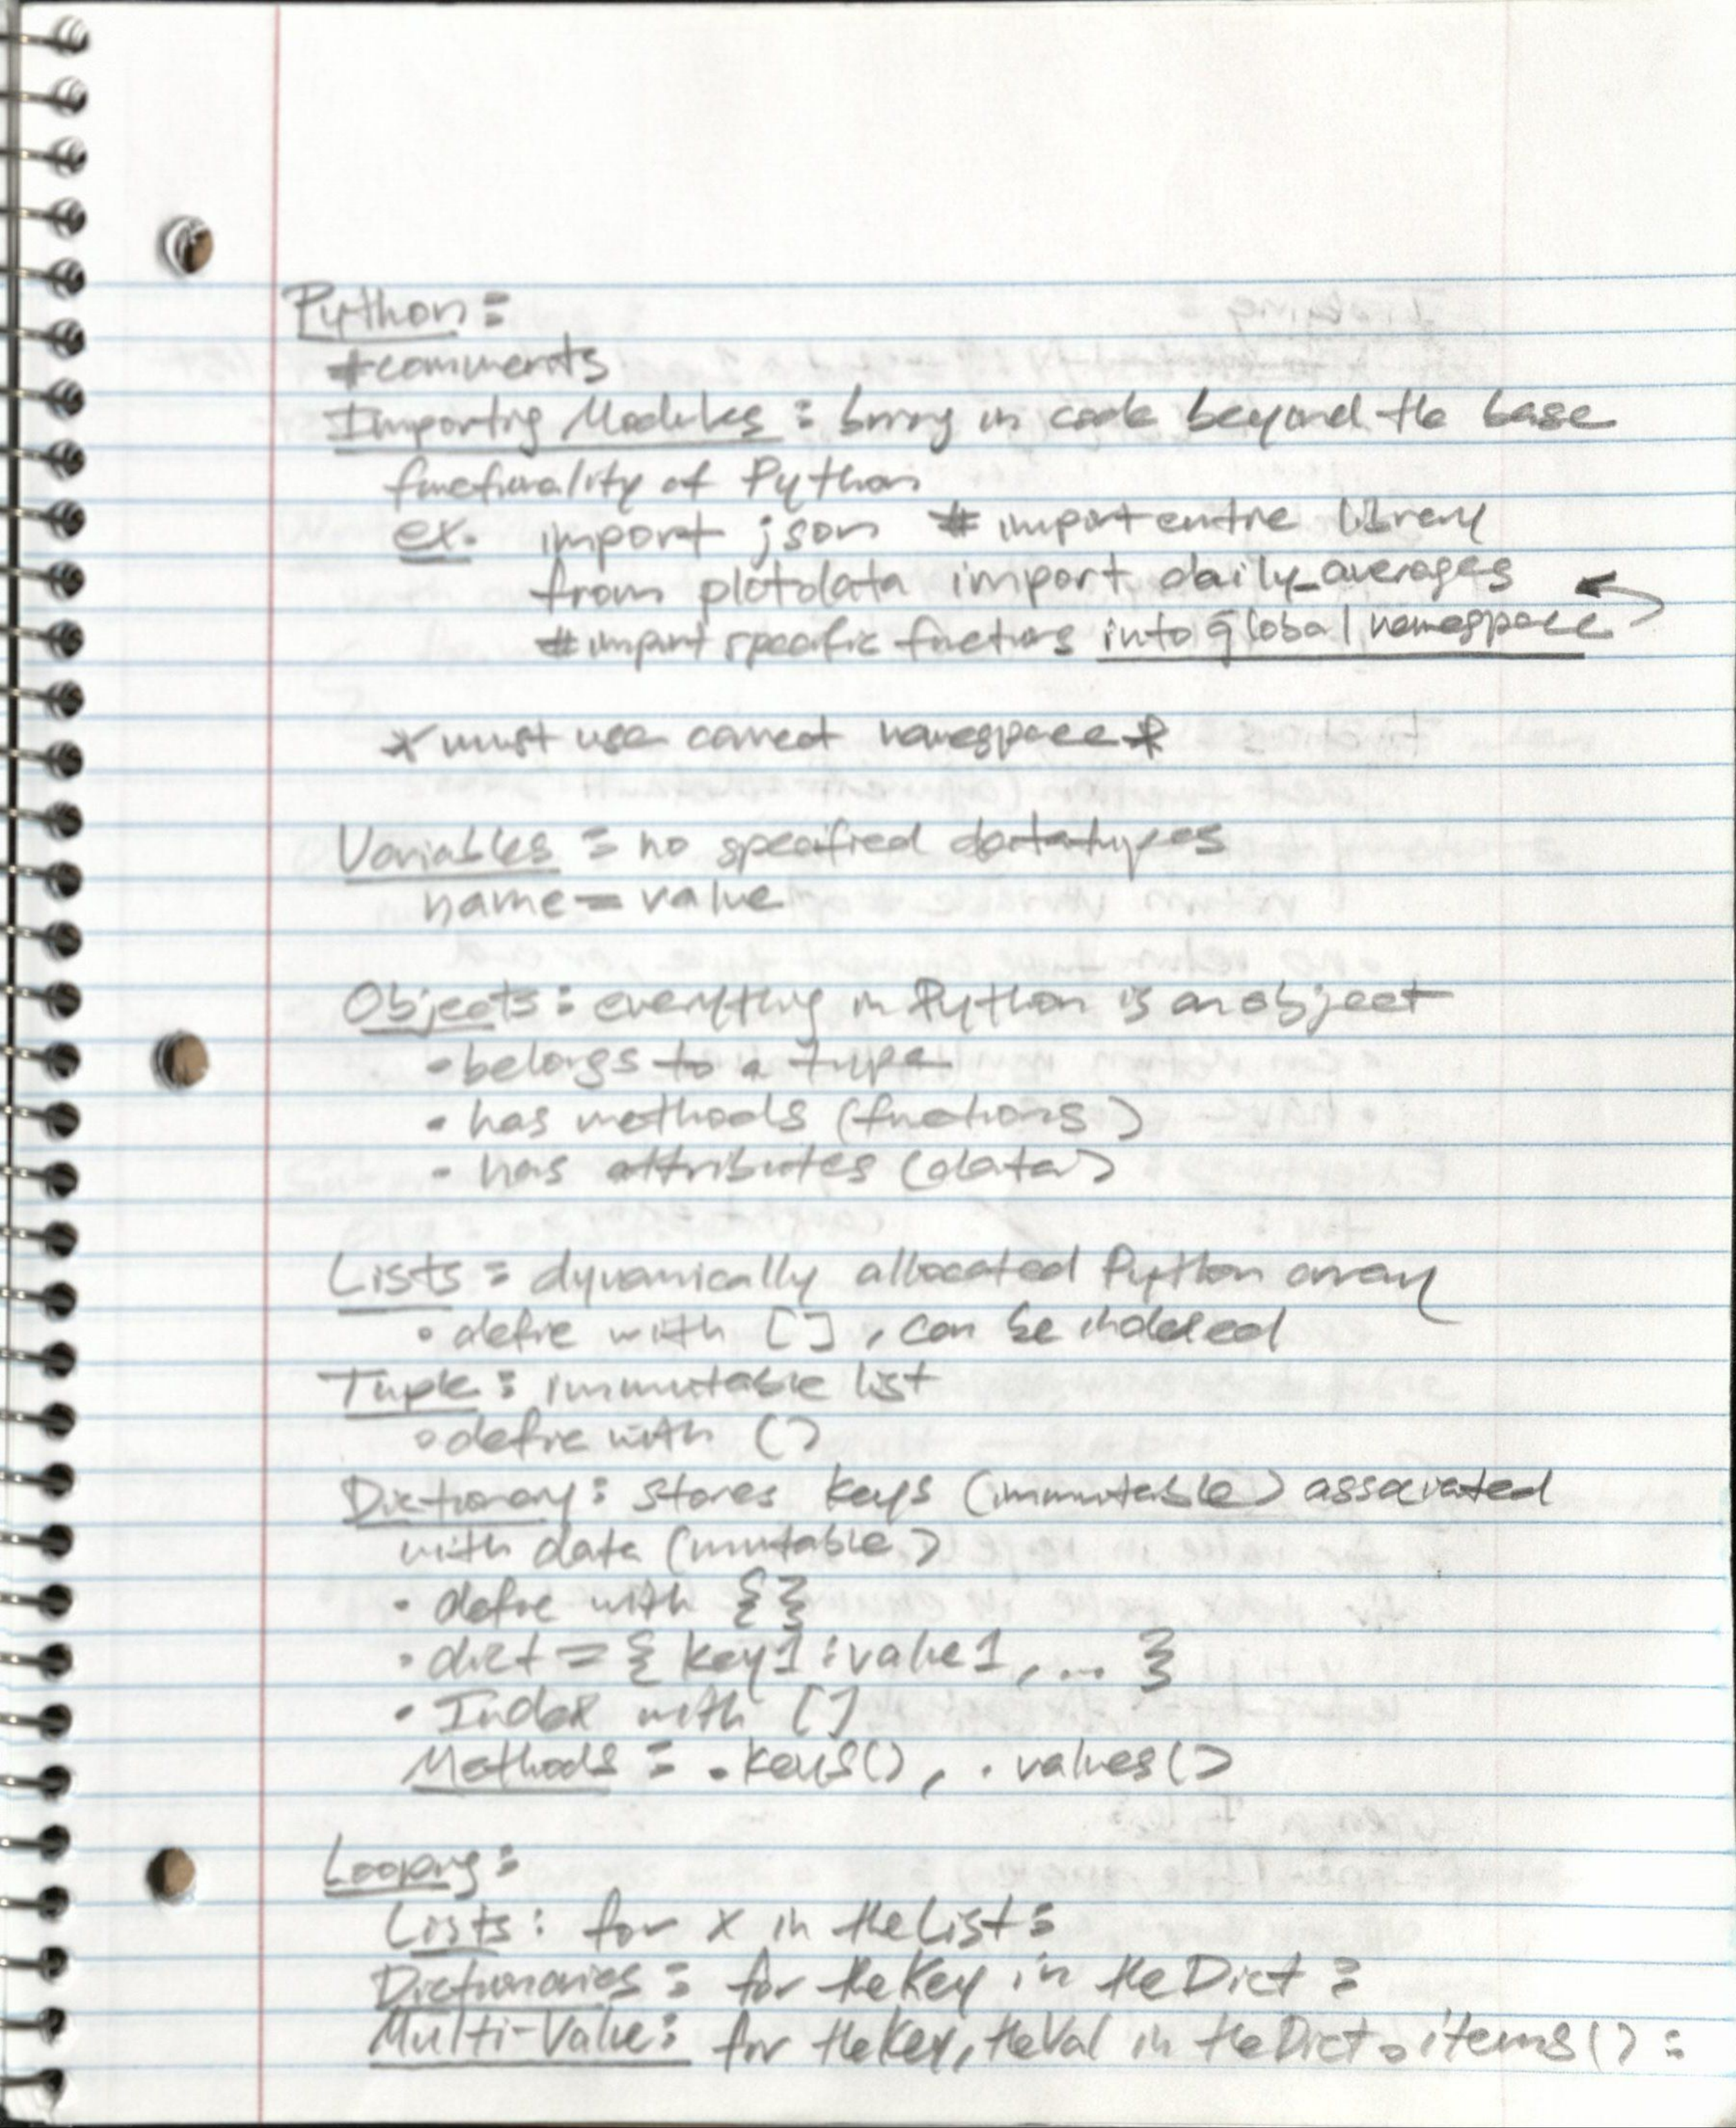 Python:
#comments
Importing Modules: bring in code beyond the base
functionality of Python
ex. import json # import entire library
from plotdata import daily_averages
# import specific functions into global namespace
* must use correct namespace *
Variables: no specified datatypes
name = value
Objects: everything in Python is an object
• belongs to a type
• has methods (functions)
• has attributes (data)
Lists: dynamically allocated Python array
• define with [], can be indexed
Tuple: immutable list
• define with ()
Dictionary: stores keys (immutable) associated
with data (mutable)
• define with {}
• dict = { key1:value1, ... }
• Index with []
Methods: .keys(), .values()
Looping:
Lists: for x in theList:
Dictionaries: for theKey in theDict:
Multi-Value: for theKey, theVal in theDict.items():